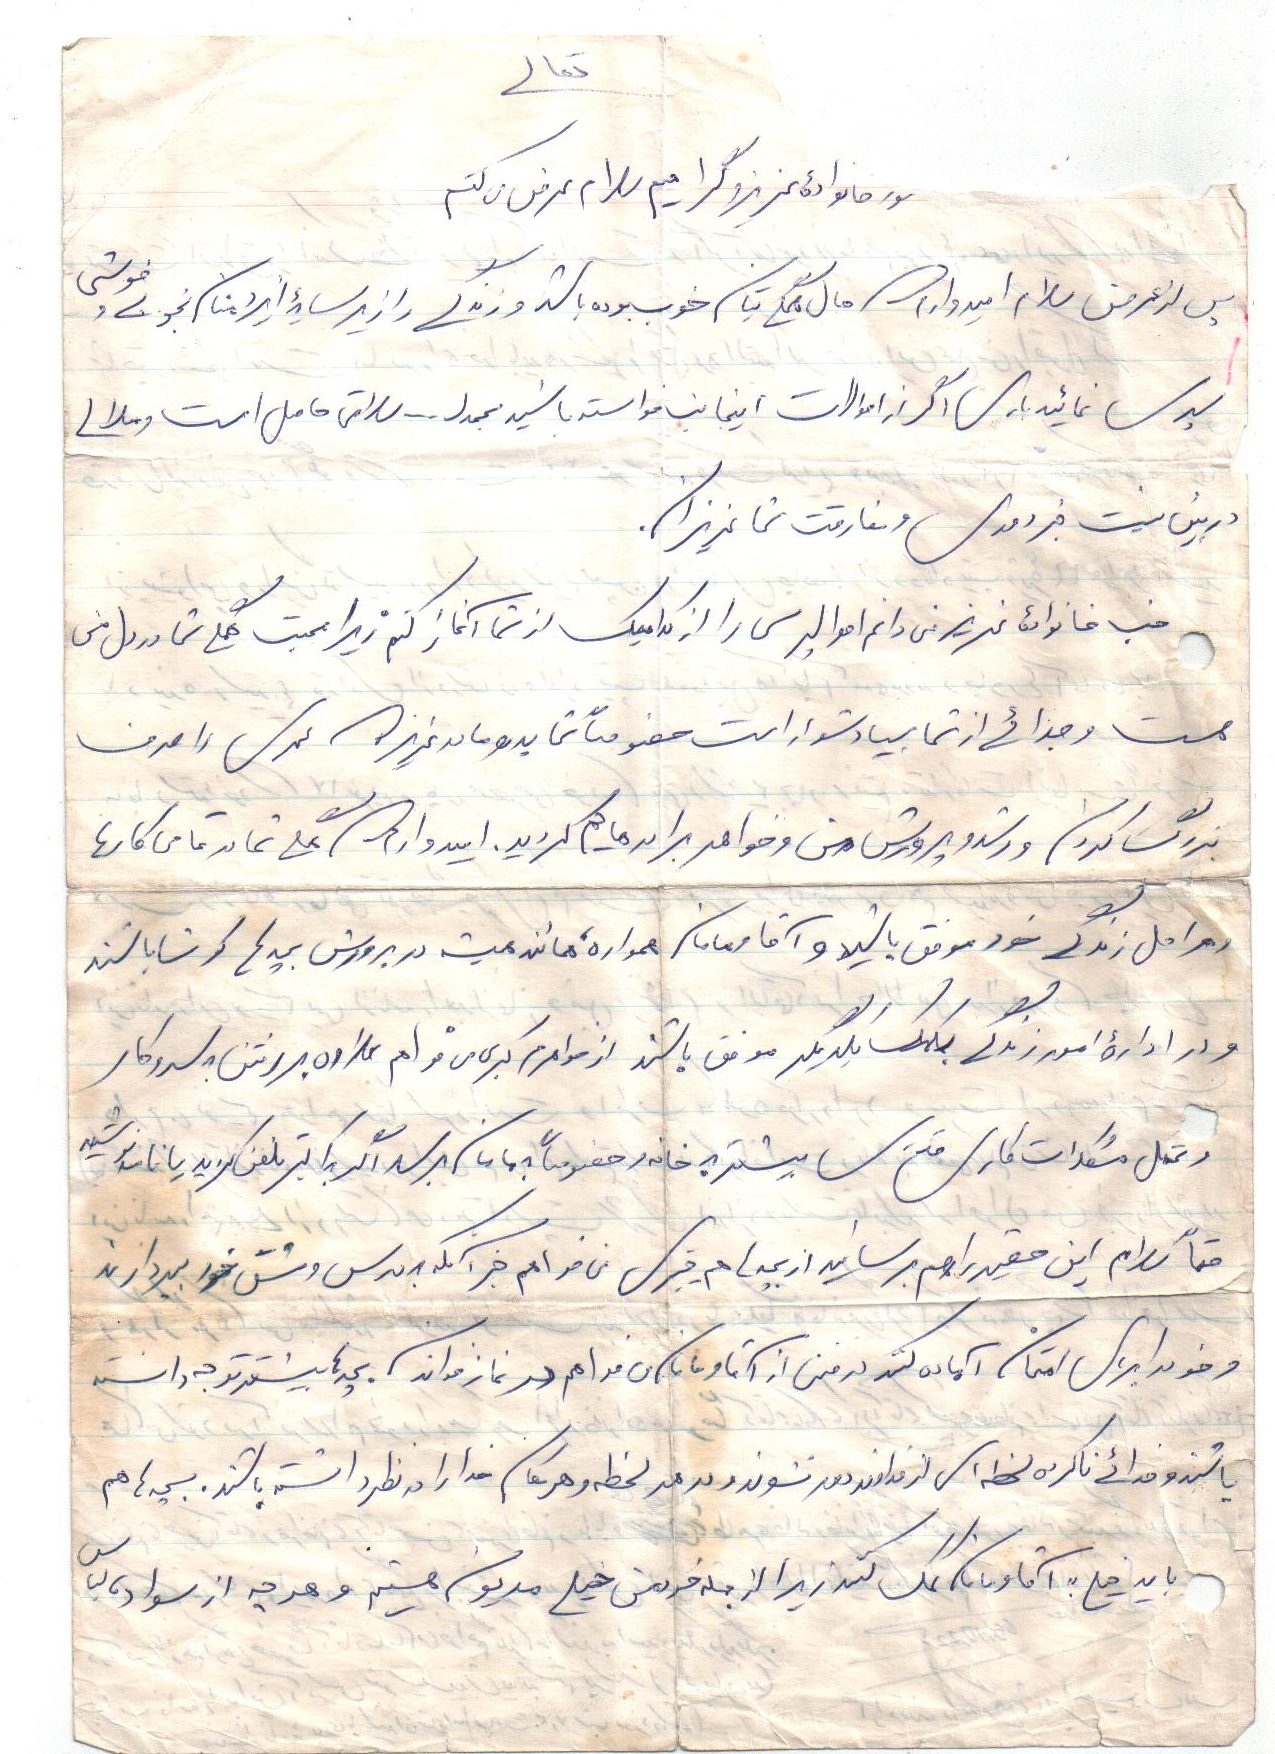 تعالی
حضور خانوادهٔ عزیز و گرامیم سلام عرض می‌کنم
پس از عرض سلام امیدوارم حال همگی‌تان خوب بوده باشد و زندگی را زیر سایهٔ ایزد منان بخوبی و خوشی
سپری نمائید باری اگر از احوالات اینجانب خواسته باشید بحمدا... سلامتی حاصل است و ملالی
در بین نیست جز دوری و مفارقت شما عزیزان.
خب خانوادهٔ عزیز نمی‌دانم احوالپرسی را از کدامیک از شما آغاز کنم زیرا محبت همگی شما در دل من
هست و جدائی از شما بسیار دشوار است خصوصاً شما پدر و مادر عزیزم که عمری را صرف
بزرگ کردن و رشد و پرورش من و خواهر برادرهایم کردید. امیدوارم همگی شما در تمامی کارها
و مراحل زندگی خود موفق باشید و آقا و مامان همواره همانند همیشه در پرورش بچه‌ها کوشا باشند
و در ادارهٔ امور زندگی بکمک یکدیگر موفق باشند از خواهرم کبری می‌خواهم علاوه بر رفتن به سر و کار
و تحمل مشکلات کاری قدری بیشتر به خانه و خصوصاً به مامان برسد اگر به اکبر تلفن کردید یا نامه نوشتید
حتماً سلام این حقیر را هم برسانید از بچه‌ها هم چیزی نمی‌خواهم جز آنکه به درس و مشق خود بپردازند
و خود را برای امتحان آماده کنند در ضمن از آقا و مامان می‌خواهم در نماز خواندن بچه‌ها بیشتر توجه داشته
باشند و خدائی ناکرده لحظه‌ای از خداوند دور نشوند و در هر لحظه و هر مکان خدا را در نظر داشته باشند. بچه‌ها هم
باید خیلی به آقا و مامان کمک کنند زیرا از جمله خود من خیلی مدیون هستیم و هر چه از سواد و لباس